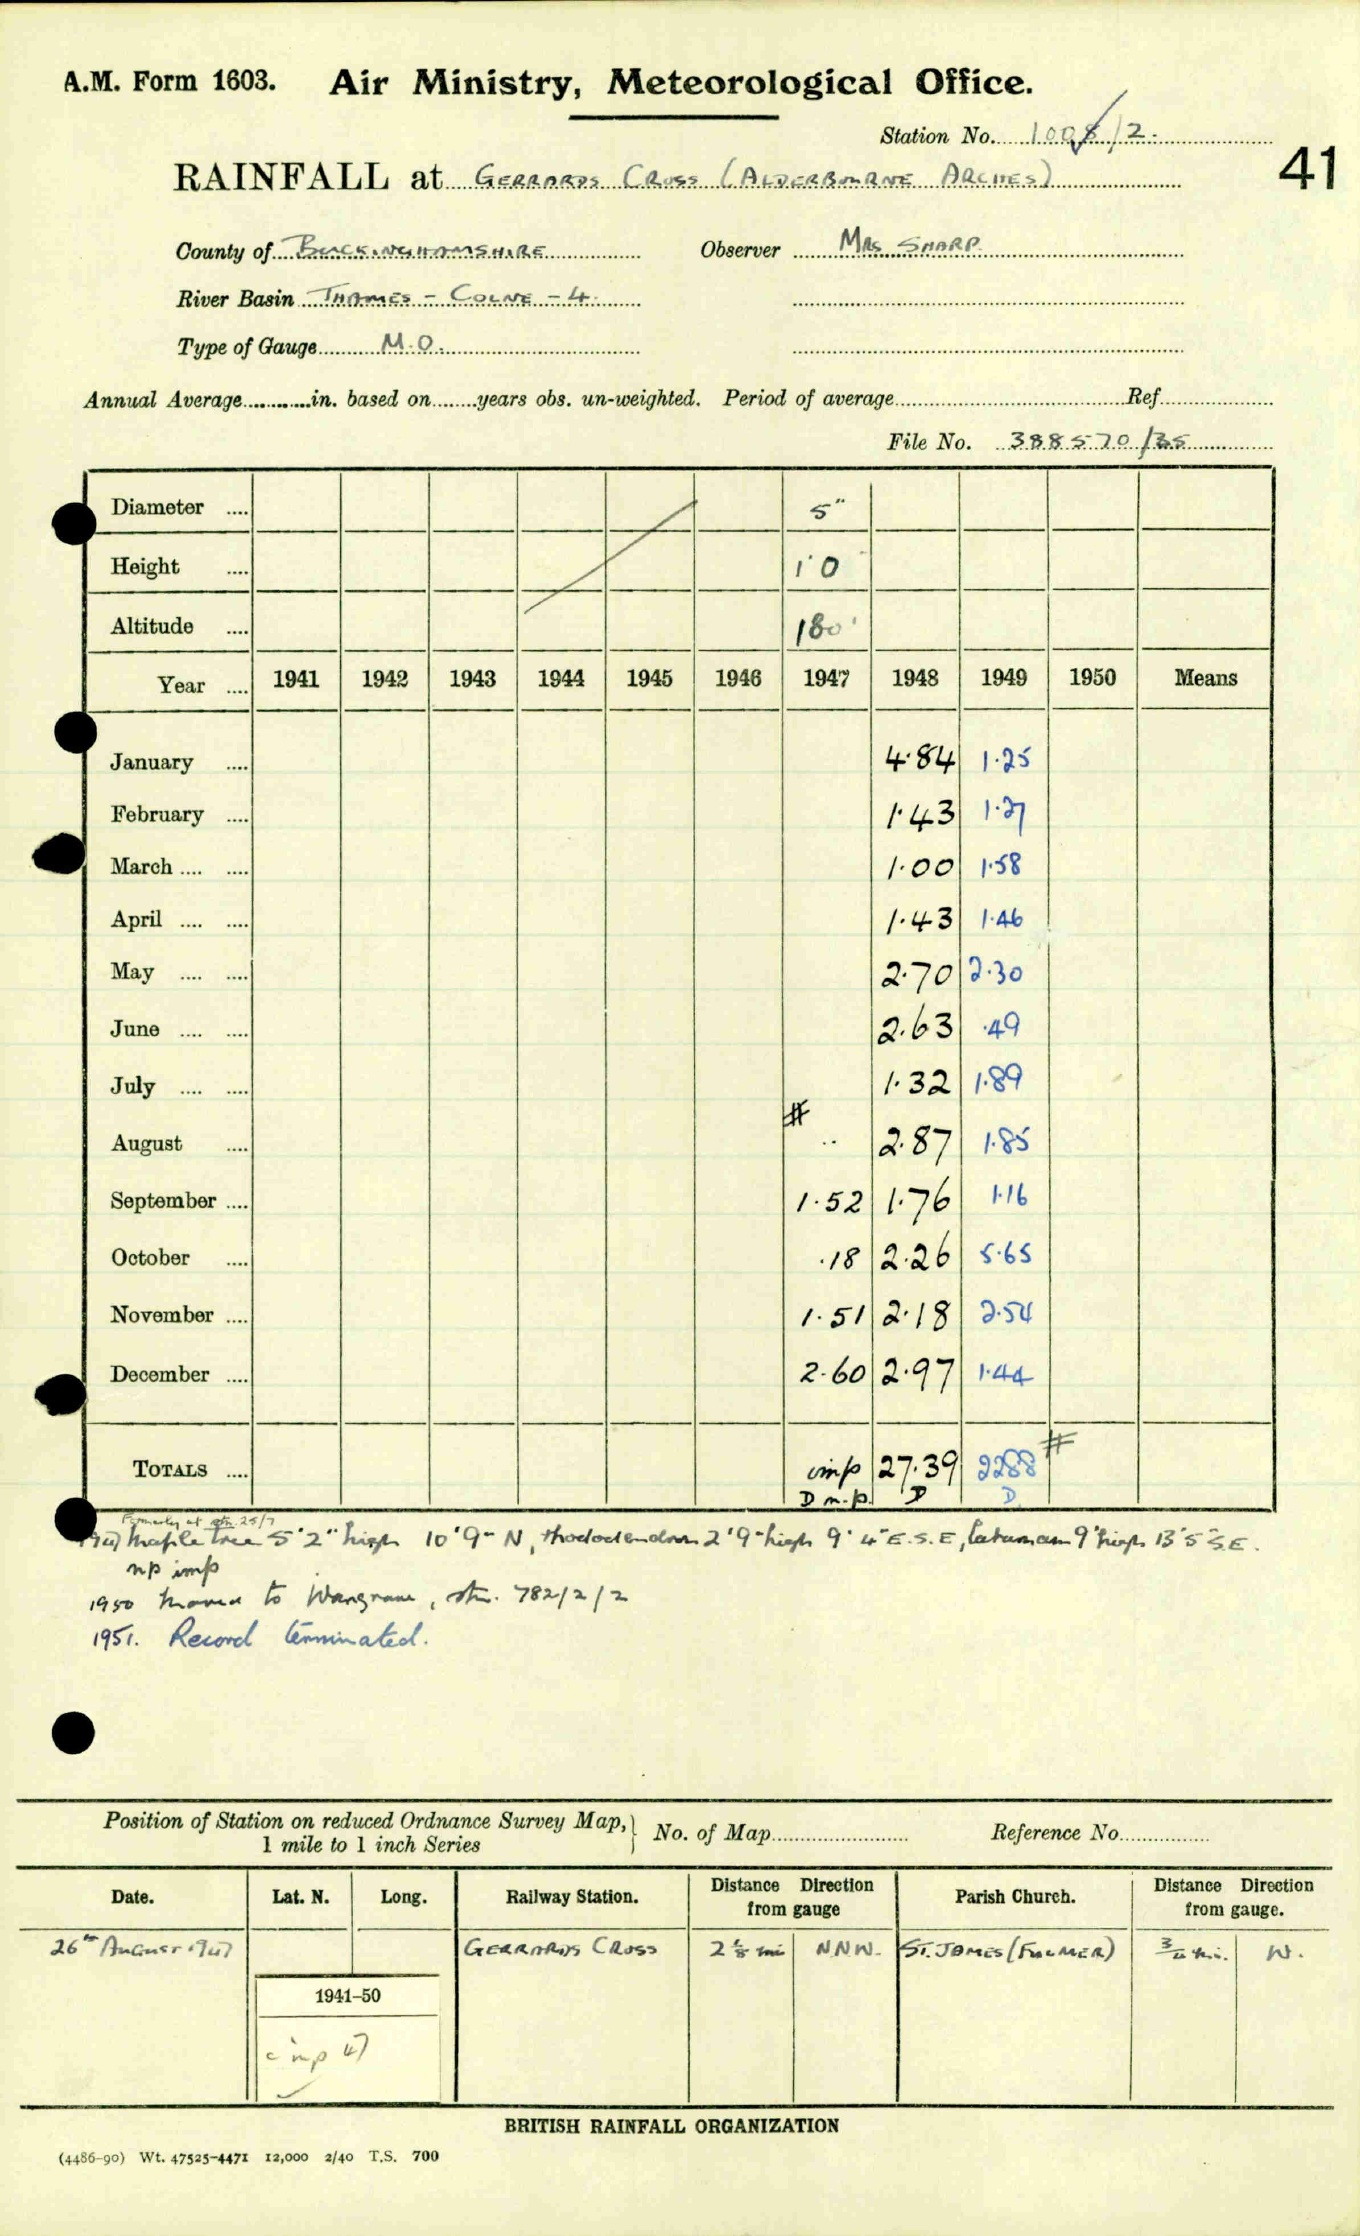 A.M. Form 1603. Air Ministry, Meteorological Office.
Station No. 1008/2.
41
RAINFALL at GERRARDS CROSS (ALDERBOURNE ARCHES)
County of BUCKINGHAMSHIRE Observer MRS SHARP.
River Basin THAMES - COLNE - 4.
Type of Gauge M.O.
Annual Average in. based on years obs. un-weighted. Period of average Ref
File No. 388570/35
Diameter .... 5"
Height .... 1'0
Altitude .... 180'
Year .... 1941 1942 1943 1944 1945 1946 1947 1948 1949 1950 Means
January .... 4.84 1.25
February .... 1.43 1.27
March .... .... 1.00 1.58
April .... .... 1.43 1.46
May .... .... 2.70 2.30
June .... .... 2.63 .49
July .... .... 1.32 1.89
#
August .... .. 2.87 1.85
September .... 1.52 1.76 1.16
October .... .18 2.26 5.65
November .... 1.51 2.18 2.54
December .... 2.60 2.97 1.44
#
TOTALS .... imp 27.39 2288
D n.p. D D
Formerly at stn. 25/7
1947 Maple tree 5'2" high 10'9" N, rhododendron 2'9" high 9'4" E.S.E, 9' high 13'5" S.E.
np imp
1950 Moved to Wargrave, stn. 782/2/2
1951. Record terminated.
Position of Station on reduced Ordnance Survey Map, } No. of Map Reference No.
1 mile to 1 inch Series
Date. Lat. N. Long. Railway Station. Distance Direction from gauge Parish Church. Distance Direction from gauge.
26th AUGUST 1947 GERRARDS CROSS 2 1/8 mi N.N.W. ST. JAMES (FULMER) 3/4 mi. W.
1941-50
imp 47
BRITISH RAINFALL ORGANIZATION
(4486-90) Wt. 47525-4471 12,000 2/40 T.S. 700